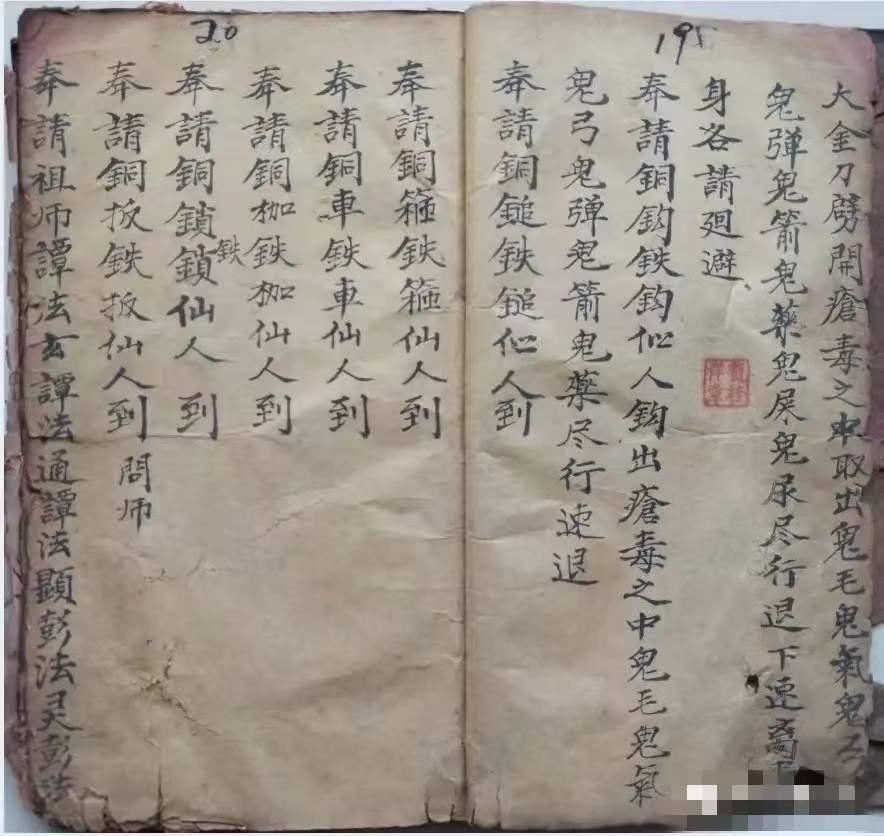 195
大金刀劈開瘡毒之中取出鬼毛鬼氣鬼弓
鬼弹鬼箭鬼藥鬼屎鬼尿尽行退下速离
身各請廻避
奉請銅鈎鉄鈎仙人鈎出瘡毒之中鬼毛鬼氣
鬼弓鬼弹鬼箭鬼藥尽行速退
奉請銅鎚鉄鎚仙人到
20
奉請銅箍鉄箍仙人到
奉請銅車鉄車仙人到
奉請銅枷鉄枷仙人到
奉請銅鎖鉄鎖仙人到
奉請銅扳鉄扳仙人到 問师
奉請祖师譚法玄譚法通譚法顯彭法灵彭法